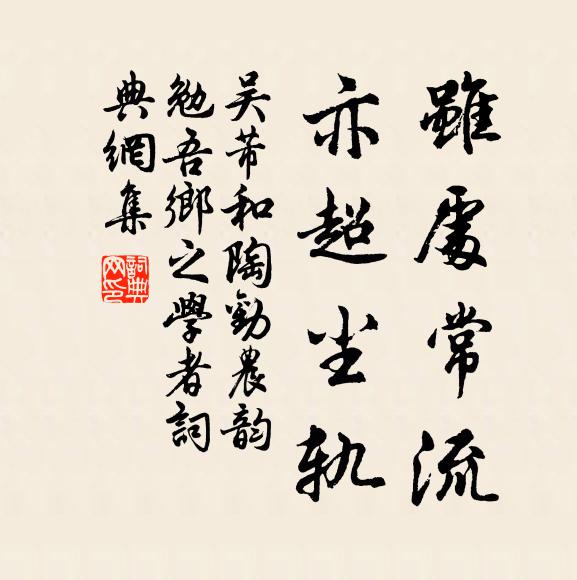 雖處常流
亦超尘軌
吴芾和陶勸農韵
勉吾鄉之學者詞
典網集
詞典
网印